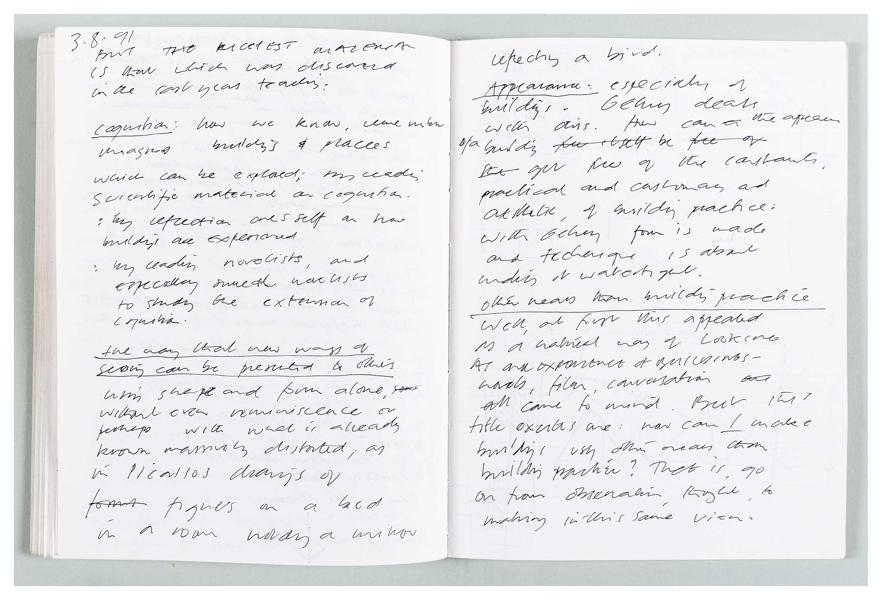 3.8.91
BUT THE RICHEST MATERIAL
is that which was discovered
in the last years teaching:
cognition: how we know, remember
imagine buildings & places
which can be explored; by reading
scientific material on cognition.
: by reflection oneself on how
buildings are experienced
: by reading novelists, and
especially novelists
to study the extension of
cognition.
the way that new ways of
seeing can be presented to others
using shape and form alone,
without even reminiscence or
perhaps with what is already
known massively distorted, as
in Picassos drawings of
figures on a bed
in a room holding a mirror
reflecting a bird.
Appearance: especially of
buildings. Gehry deals
with this. How can the appearance
o/a building be
get free of the constraints,
practical and customary and
aesthetic, of building practice:
with Gehry form is made
and technique is about
making it watertight.
other means than building practice
Well, at first this appealed
as a natural way of looking
at an experience of buildings—
words, film, conversation
all came to mind. But this
title exceeds are: how can I make
buildings using other means than
building practice? That is, go
on from observation, thought, to
making in this same view.